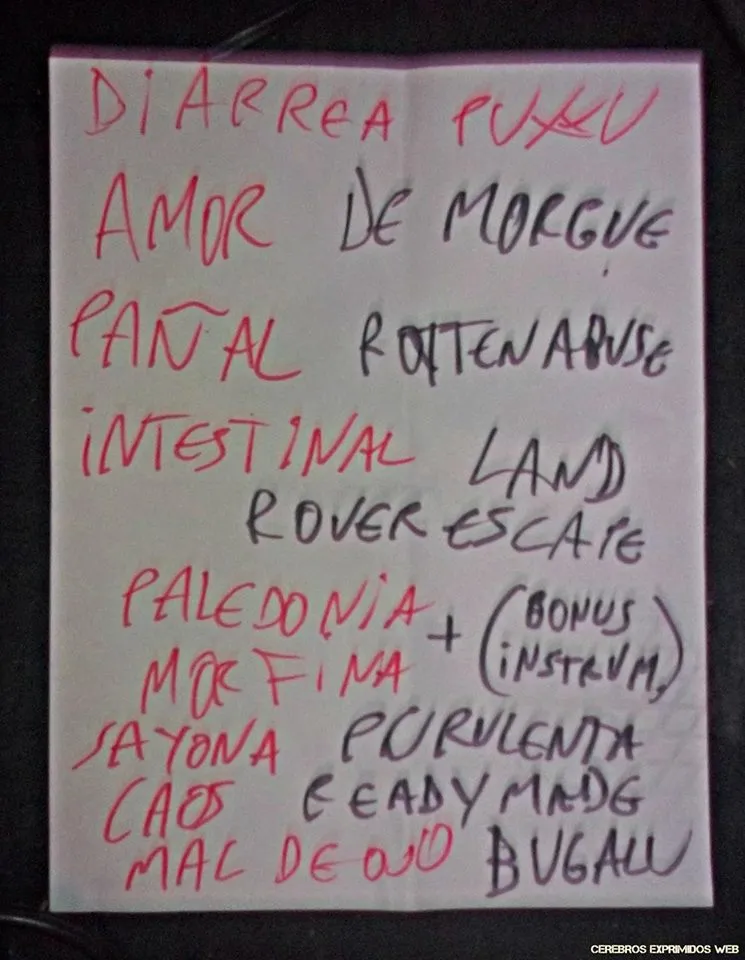 DIARREA PUXXU
AMOR DE MORGUE
PAÑAL ROTTEN ABUSE
INTESTINAL LAND
ROVER ESCAPE
PALEDONIA + (BONUS
MORFINA INSTRUM,)
SAYONA PURULENTA
CAOS READYMADE
MAL DE OJO BUGALU
CEREBROS EXPRIMIDOS WEB